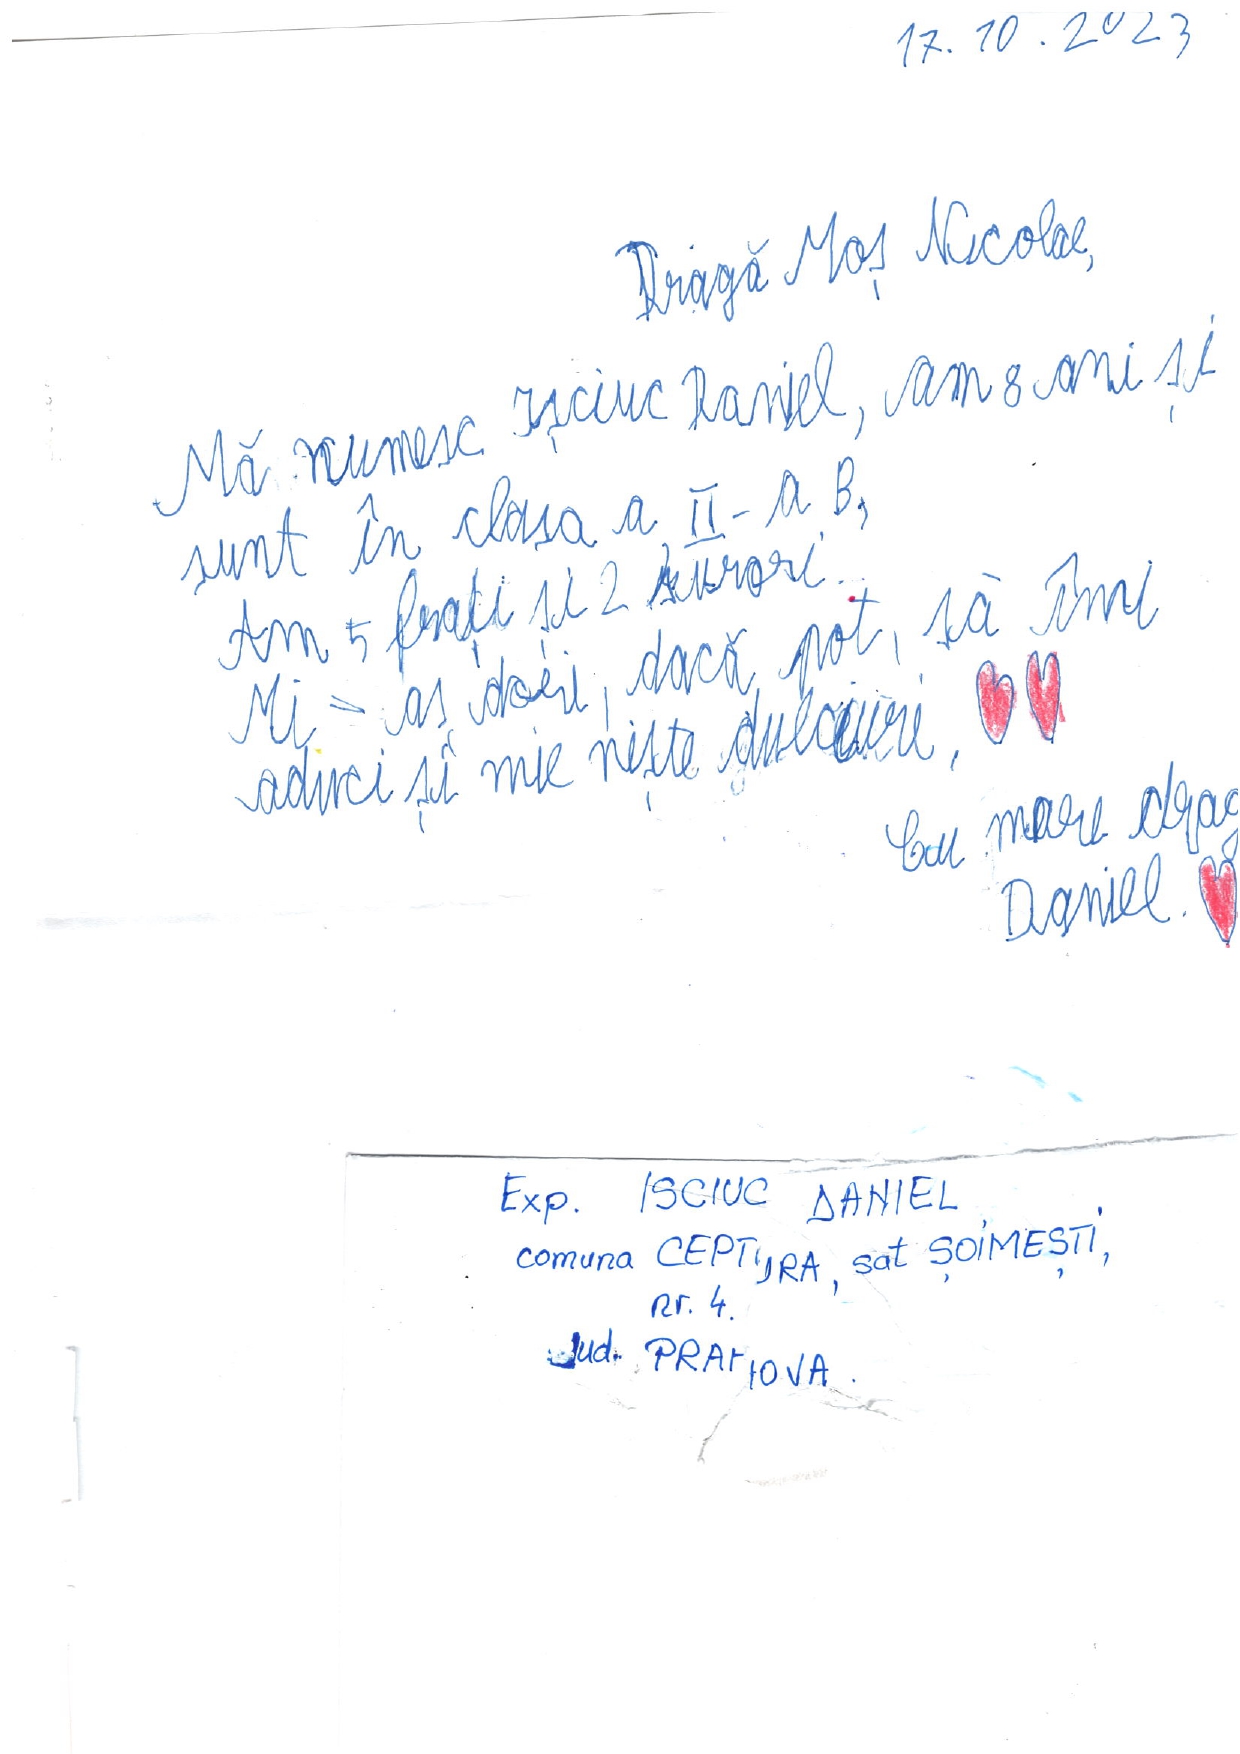 17.10.2023
Dragă Moș Nicolae,
Mă numesc Ișciuc Daniel, am 8 ani și
sunt în clasa a II-a B,
Am 5 frați și 2 surori.
Mi-aș dori, dacă pot, să îmi
aduci și mie niște dulciuri,
Cu mare drag
Daniel.
Exp. ISCIUC DANIEL
comuna CEPTURA, sat ȘOIMEȘTI,
nr. 4.
Jud. PRAHOVA.